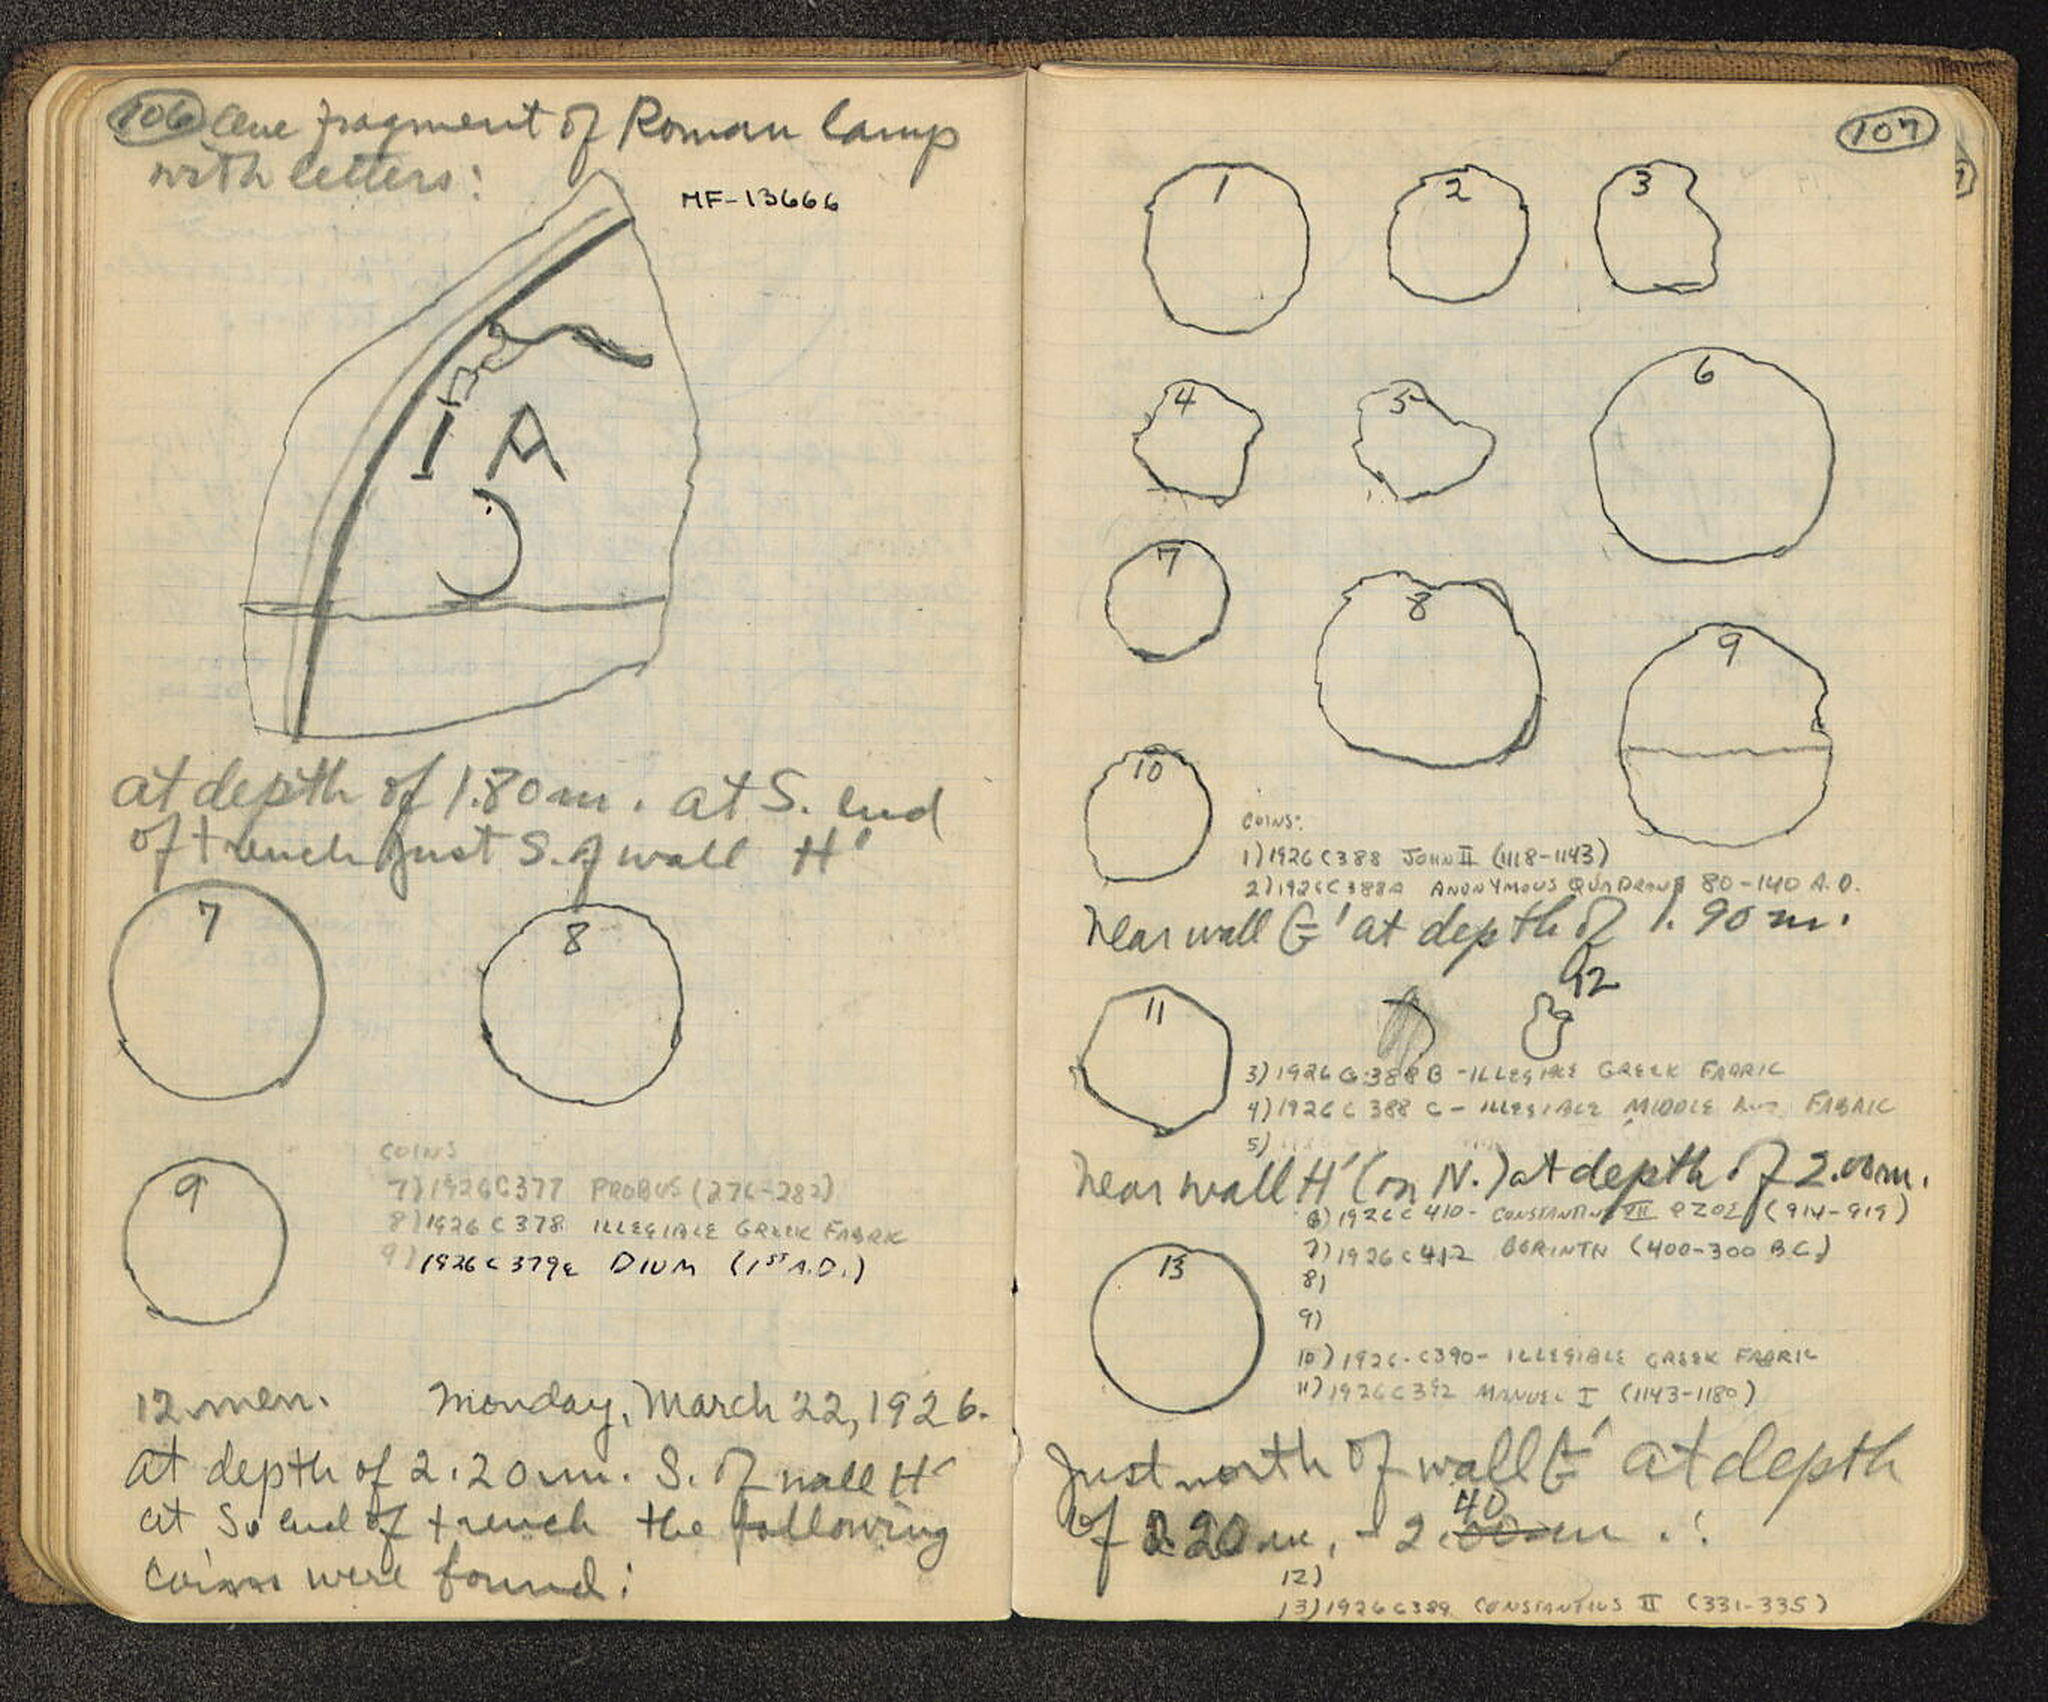 106 One fragment of Roman lamp
with letters:
MF-13666
I A
at depth of 1.80 m. at S. end
of trench just S. of wall H'
7
8
9
COINS
7) 1926 C377 PROBUS (276-282)
8) 1926 C 378 ILLEGIBLE GREEK FABRIC
9) 1926 C 379e DIUM (1ST A.D.)
12 men. Monday, March 22, 1926.
At depth of 2.20 m. S. of wall H'
at S. end of trench the following
coins were found:
107
1
2
3
4
5
6
7
8
9
10
COINS:
1) 1926 C388 JOHN II (1118-1143)
2) 1926 C388A ANONYMOUS QUADRANS 80-140 A.D.
Near wall G' at depth of 1.90 m.
11
12
3) 1926 C 388 B - ILLEGIBLE GREEK FABRIC
4) 1926 C 388 C - ILLEGIBLE MIDDLE FABRIC
5)
Near wall H' (on N.) at depth of 2.00 m.
6) 1926 C 410 - CONSTANTINE VII & ZOE (914-919)
7) 1926 C 412 CORINTH (400-300 B.C.)
13
8)
9)
10) 1926 - C390 - ILLEGIBLE GREEK FABRIC
11) 1926 C392 MANUEL I (1143-1180)
Just north of wall G' at depth
of 2.20 m. - 2.40 m.:
12)
13) 1926 C389 CONSTANTIUS II (331-335)